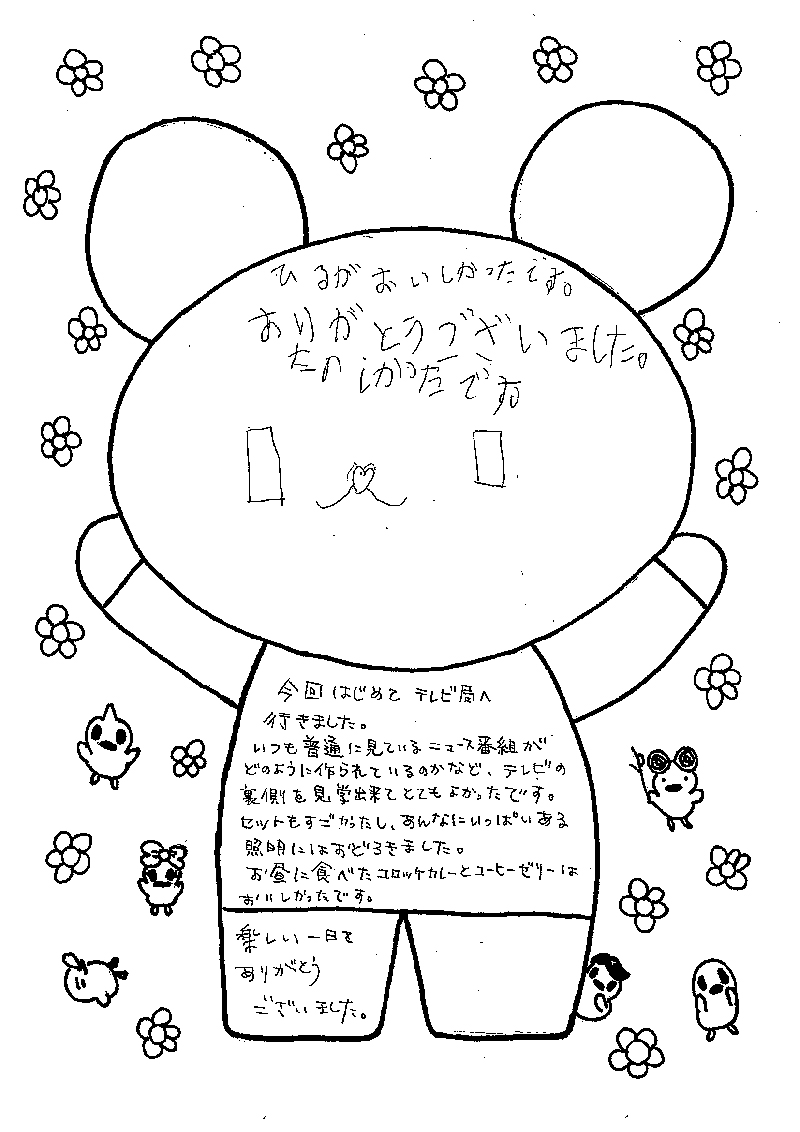 ひるがおいしかったです。
ありがとうございました。
たのしかったです
今回はじめてテレビ局へ
行きました。
いつも普通に見ているニュース番組が
どのように作られているのかなど、テレビの
裏側を見学出来てとてもよかったです。
セットもすごかったし、あんなにいっぱいある
照明にはおどろきました。
お昼に食べたコロッケカレーとコーヒーゼリーは
おいしかったです。
楽しい一日を
ありがとう
ございました。